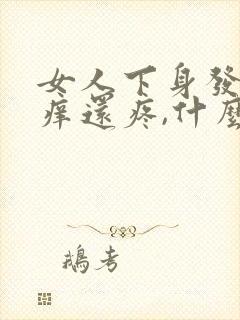 女人下身發
痒還疼,什麼
鵝考